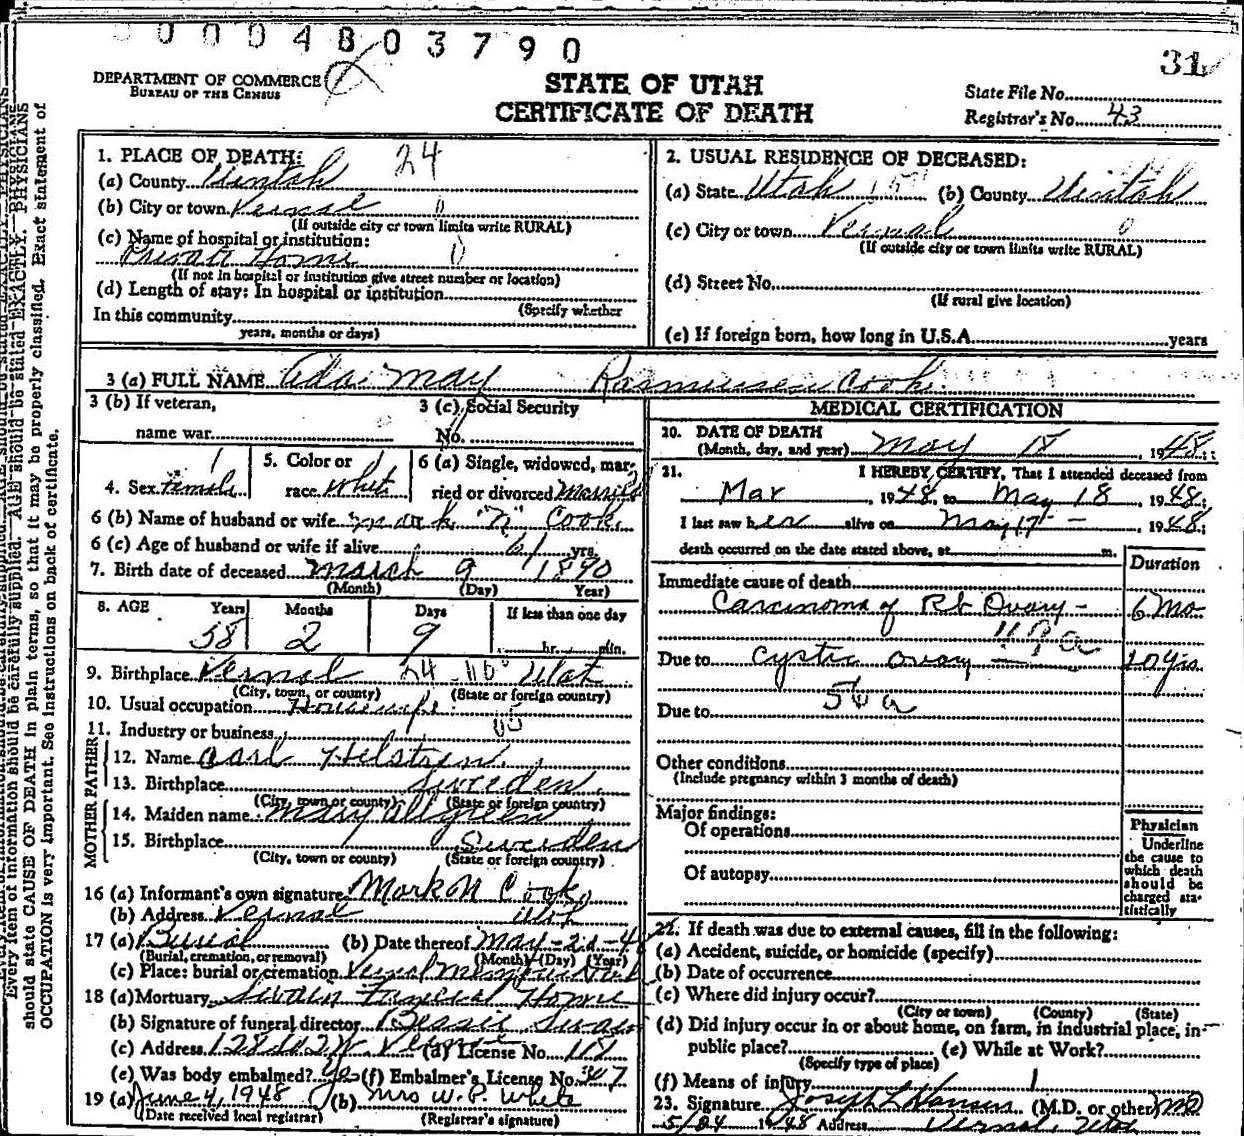 0004803790
31
DEPARTMENT OF COMMERCE
BUREAU OF THE CENSUS
STATE OF UTAH
CERTIFICATE OF DEATH
State File No.
Registrar's No. 43
1. PLACE OF DEATH: 24
(a) County Uintah
(b) City or town Vernal 0
(If outside city or town limits write RURAL)
(c) Name of hospital or institution:
Private Home 0
(If not in hospital or institution give street number or location)
(d) Length of stay: In hospital or institution
(Specify whether
In this community
years, months or days)
2. USUAL RESIDENCE OF DECEASED:
(a) State Utah (b) County Uintah
(c) City or town Vernal 0
(If outside city or town limits write RURAL)
(d) Street No.
(If rural give location)
(e) If foreign born, how long in U.S.A. years
3 (a) FULL NAME Ada May Rasmussen Cook
3 (b) If veteran,
name war
3 (c) Social Security
No.
4. Sex Female
5. Color or
race White
6 (a) Single, widowed, mar-
ried or divorced Married
6 (b) Name of husband or wife Mark "N" Cook
6 (c) Age of husband or wife if alive 61 yrs.
7. Birth date of deceased March 9 1890
(Month) (Day) Year)
8. AGE Years Months Days If less than one day
58 2 9 hr. min.
9. Birthplace Vernal 24 Utah
(City, town, or county) (State or foreign country)
10. Usual occupation Housewife
11. Industry or business
FATHER
12. Name Carl
13. Birthplace Sweden
(City, town or county) (State or foreign country)
MOTHER
14. Maiden name Mary
15. Birthplace Sweden
(City, town or county) (State or foreign country)
16 (a) Informant's own signature Mark N Cook
(b) Address Vernal Utah
17 (a) Burial (b) Date thereof May
(Burial, cremation, or removal) (Month) (Day) (Year)
(c) Place: burial or cremation Vernal
18 (a) Mortuary Swain Funeral Home
(b) Signature of funeral director Bessie Swain
(c) Address Vernal (d) License No.
(e) Was body embalmed? Yes (f) Embalmer's License No.
19 (a) June 4, 1948 (b) Mrs W. P. White
(Date received local registrar) (Registrar's signature)
MEDICAL CERTIFICATION
20. DATE OF DEATH
(Month, day, and year) May 18, 1948
21. I HEREBY CERTIFY, That I attended deceased from
Mar, 1948, to May 18, 1948;
I last saw her alive on May 17, 1948;
death occurred on the date stated above, at m.
Duration
Immediate cause of death
Carcinoma of Rt Ovary - 6 Mo
Due to Cystic ovary 10 yrs.
Due to
Other conditions
(Include pregnancy within 3 months of death)
Major findings:
Of operations
Of autopsy
Physician
Underline
the cause to
which death
should be
charged sta-
tistically
22. If death was due to external causes, fill in the following:
(a) Accident, suicide, or homicide (specify)
(b) Date of occurrence
(c) Where did injury occur?
(City or town) (County) (State)
(d) Did injury occur in or about home, on farm, in industrial place, in
public place? (e) While at Work?
(Specify type of place)
(f) Means of injury
23. Signature Joseph L Hansen (M.D. or other) MD
5/24 1948 Address Vernal, Utah
Every item of information should be carefully supplied. AGE should be stated EXACTLY. PHYSICIANS
should state CAUSE OF DEATH in plain terms, so that it may be properly classified. Exact statement of
OCCUPATION is very important. See instructions on back of certificate.